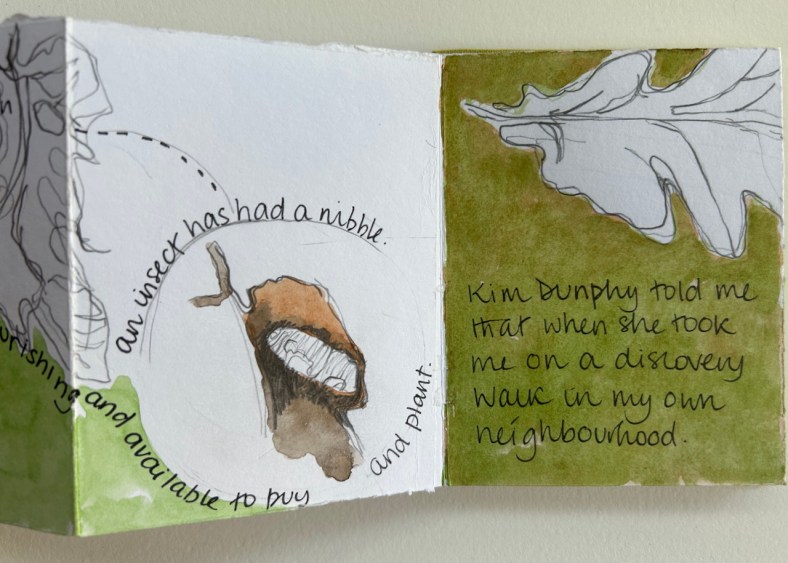 an insect has had a nibble.
urishing and available to buy
and plant.
Kim Dunphy told me
that when she took
me on a discovery
walk in my own
neighbourhood.